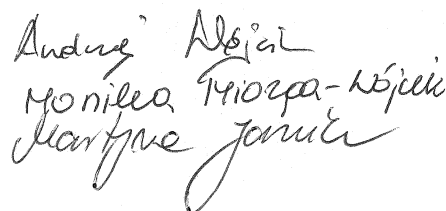 Andrzej Wójcik
Monika Miozga-Wójcik
Martyna